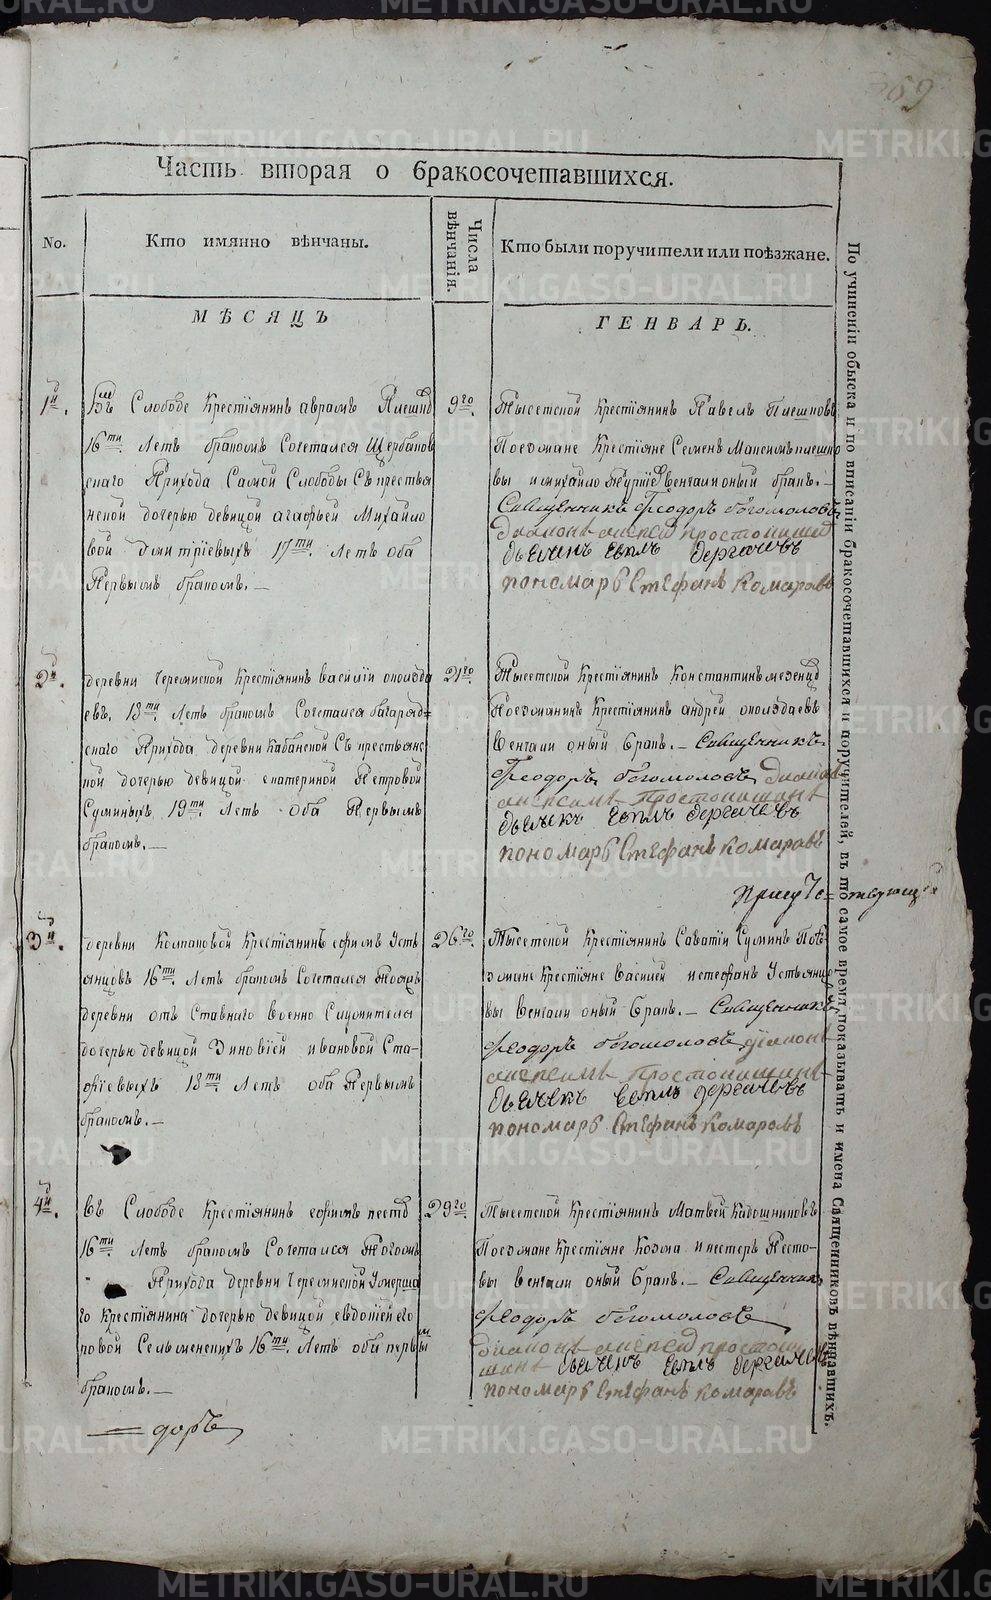 Часть вторая о бракосочетавшихся.
No.
Кто имянно вѣнчаны.
Числа вѣнчанія.
Кто были поручители или поѣзжане.
МѢСЯЦЪ
ГЕНВАРЬ.
1й.
Въ Слободе Крестіянинъ аврамъ
16ти. Летъ бракомъ Сочетался Щербаков
скаго Прихода Самой Слободы Съ крестья
нской дочерью девицой агафьей Михайло
вой дмитріевыхъ 17ти. Летъ оба
Первымъ бракомъ. —
9го.
Тысетской Крестіянинъ Павелъ Плешковъ
Поезжане Крестіяне Семенъ Максимъ плешко
вы и михайло венчали оный бракъ. —
Священникъ Феодоръ богомоловъ
діаконъ алексей простопишен
дьячекъ дергачевъ
пономарь Стефанъ Комаравъ
2й.
деревни черемиской Крестіянинъ василіи оползда
евъ, 18ти. Летъ бракомъ Сочетался багаряд=
скаго Прихода деревни Кабанской Съ крестьянс
кой дочерью девицой екатериной Петровой
Суминыхъ 19ти. Летъ Оба Первымъ
бракомъ. —
21го.
Тысетской Крестіянинъ Константинъ мезенцо
Поезжанинъ Крестіянинъ андрей ополздаевъ
Венчали оный бракъ. — Священникъ
Феодоръ богомоловъ Диакон
алексей простопишинъ
дьячекъ дергачевъ
пономарь Стефанъ комаравъ
3й.
деревни Колпаковой Крестіянинъ ефимъ Усть
янцовъ 16ти. Летъ бракомъ Сочетался Тояжъ
деревни отъ Ставнаго военно Служителы
дочерью девицой Зиновіей ивановой Ста-
18ти. Летъ оба Первымъ
бракомъ. —
26го.
Тысетской Крестіянинъ Саватіи Суминъ Поѣ
зжане Крестіяне василей истефанъ Устьянцо
вы венчали оный бракъ. — Священникъ
Феодоръ богомоловъ діаконъ
алексей простопишинъ
дьячекъ дергачевъ
пономарь Стефанъ комаровъ
4й.
въ Слободе Крестіянинъ ефимъ песто
16ти Летъ бракомъ Сочетался Тогожъ
Прихода деревни Черемиской Умерша
го крестіянина дочерью девицой евдокіей его
ровой Сельменскихъ 16ти. Летъ оба первы м
бракомъ. —
29го.
Тысетской Крестіянинъ Матвей Кадошниковъ
Поезжане Крестіяне Козма инестеръ Песто-
вы венчали оный бракъ. — Священник
Феодоръ богомоловъ
диаконъ алексей простопи
шинъ дьячекъ дергачевъ
пономарь Стефанъ комаравъ
— доръ
По учиненіи обыска и по вписаніи бракосочетавшихся и поручителей, въ то самое время показывать и имена Священниковъ вѣнчавшихъ.
METRIKI.GASO-URAL.RU